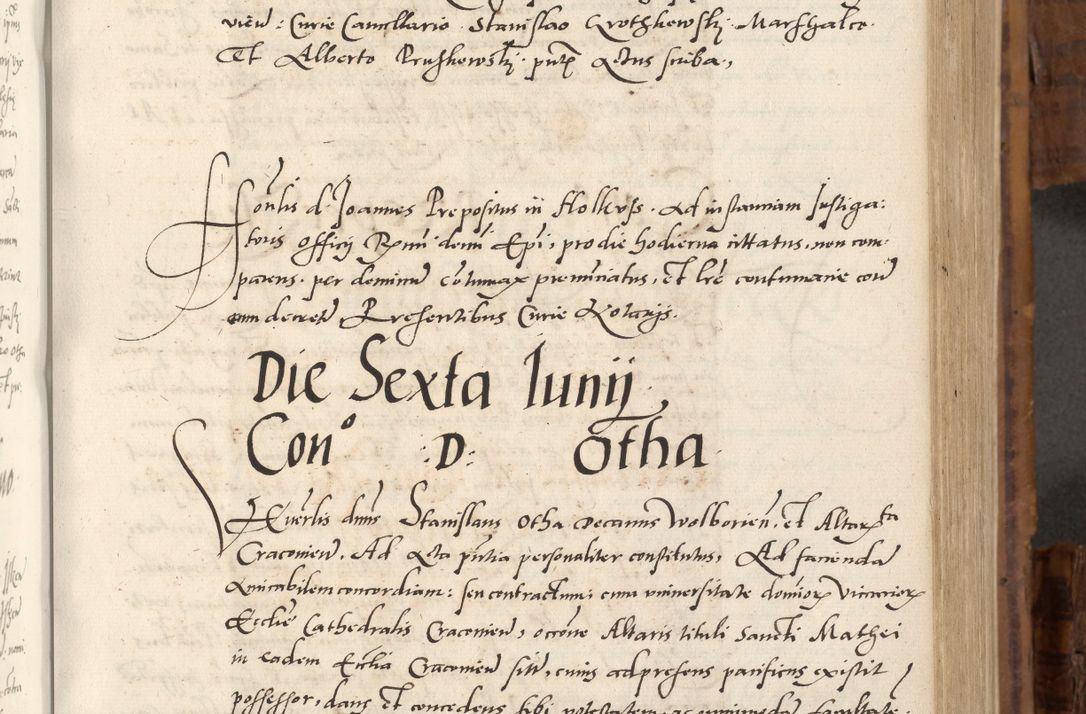 vien̄ : Curie Cancellario . Stanislao Grothkowskj . Marshalco .
Et Alberto Pruskowskj . pn̄tis Actus scriba .,
Honr̄lis d. Joannes Prepositus in̄ . Ad instantiam Instiga:
toris officij Rmī domī Ep̄i, pro die hodierna cittatus, non com:
parens . per dominū cōtumax pronūciatus, Et lr̄e contumacie con
decretȩ Presentibus Curie Notarijs .
Die Sexta Iunij .,
Conº : D : Otha .
Venērlis dn̄s Stanislaus Otha Decanus Wolborien̄, et Altarista
Cracovien̄ . Ad Acta pn̄tia personaliter constitutus, Ad faciendā
Amicabilem concordiam : seu contractum, cum universitate dominorū Vicariorū
Ecclīe Cathedralis Cracovien̄, occōne Altaris tituli Sancti Mathei
in eadem Ecclīa Cracovien̄ siti, cuius ad presens pacificus existit
possessor, dans Et concedens sibi potestatem, ac omnimodā facultatē .